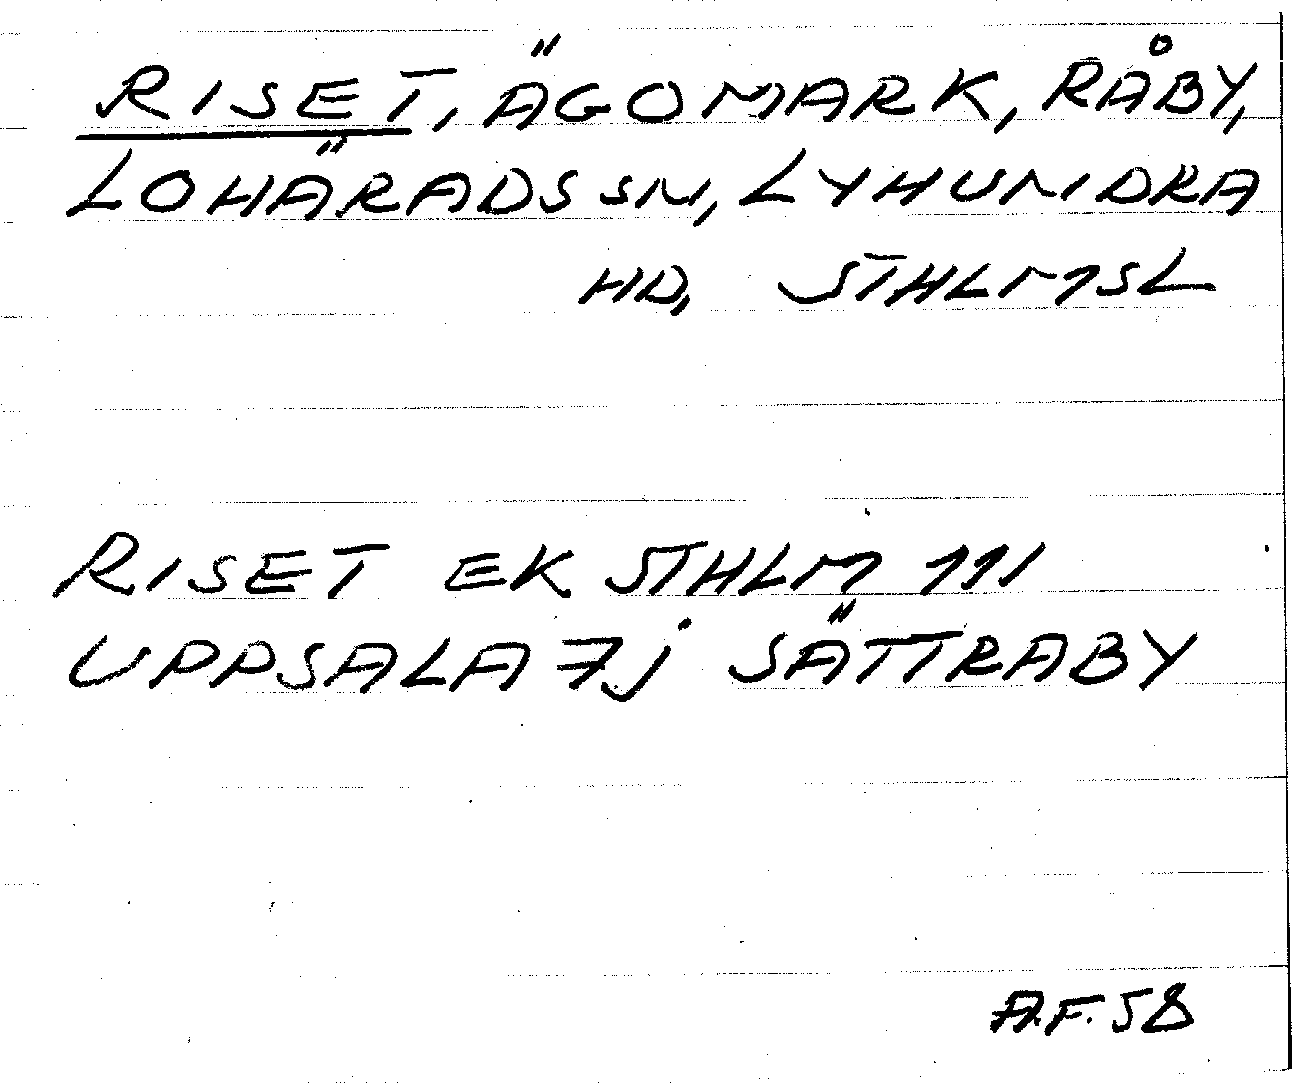 RISET, ÄGOMARK, RÅBY,
LOHÄRADS SN, LYHUNDRA
HD, STHLMSL
RISET EK STHLM 111
UPPSALA 7j SÄTTRABY
A.F. 58